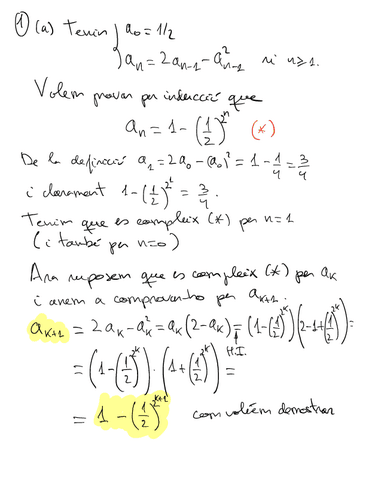 ① (a) Tenim { a₀ = 1/2
{ aₙ = 2aₙ₋₁ - a²ₙ₋₁ si n ≥ 1.
Volem provar per inducció que
aₙ = 1 - (1/2)^{2^n} (*)
De la definició a₁ = 2a₀ - (a₀)² = 1 - 1/4 = 3/4
i clarament 1 - (1/2)^{2^1} = 3/4.
Tenim que es compleix (*) per n=1
(i també per n=0)
Ara suposem que es compleix (*) per aₖ
i anem a comprovar-ho per aₖ₊₁.
aₖ₊₁ = 2aₖ - aₖ² = aₖ(2 - aₖ) = (1 - (1/2)^{2^k})(2 - 1 + (1/2)^{2^k}) =
H.I.
= (1 - (1/2)^{2^k}) · (1 + (1/2)^{2^k}) =
= 1 - (1/2)^{2^{k+1}} com volíem demostrar